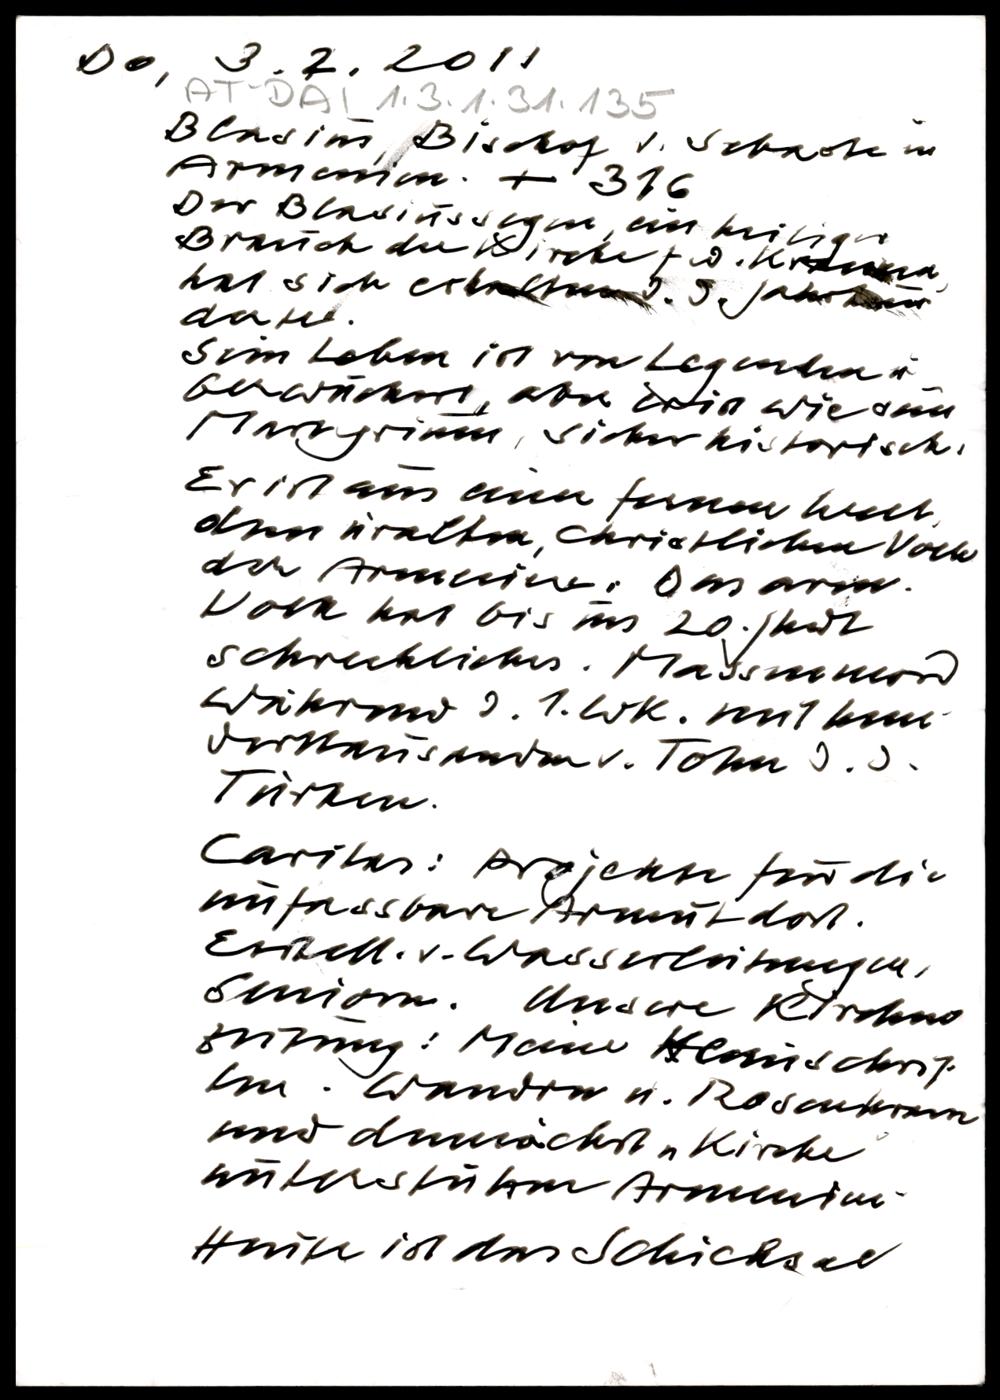 Do, 3.2.2011
AT-DAI 1.3.1.31.135
Blasius, Bischof v. Sebaste in
Armenien. + 316
Der Blasiussegen, ein heiliger
Brauch der Kirche f. d.
hat sich erhalten d. d. Jahrhun
derte.
Sein Leben ist von Legenden ü
berwuchert, aber er ist wie sein
Martyrium, sicher historisch.
Er ist aus einer fernen Welt,
dem uralten, christlichen Volk
der Armenier. Das arm.
Volk hat bis ins 20. Jhdt
schreckliches. Massenmord
während d. 1. WK. mit hun-
derttausenden v. Toten d. d.
Türken.
Caritas: Projekte für die
unfassbare Armut dort.
Erstell. v. Wasserleitungen,
Senioren. Unsere Kirchen
zeitung: Meine Kleinschrif-
ten. Wandern u. Rosenkranz
und demnächst "Kirche
unterstützen Armenien.
Heute ist das Schicksal